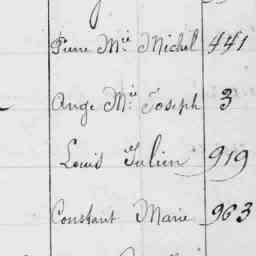 Pierre Mie Michel 441
Ange Mie Joseph 3
Louis Julien 919
Constant Marie 963